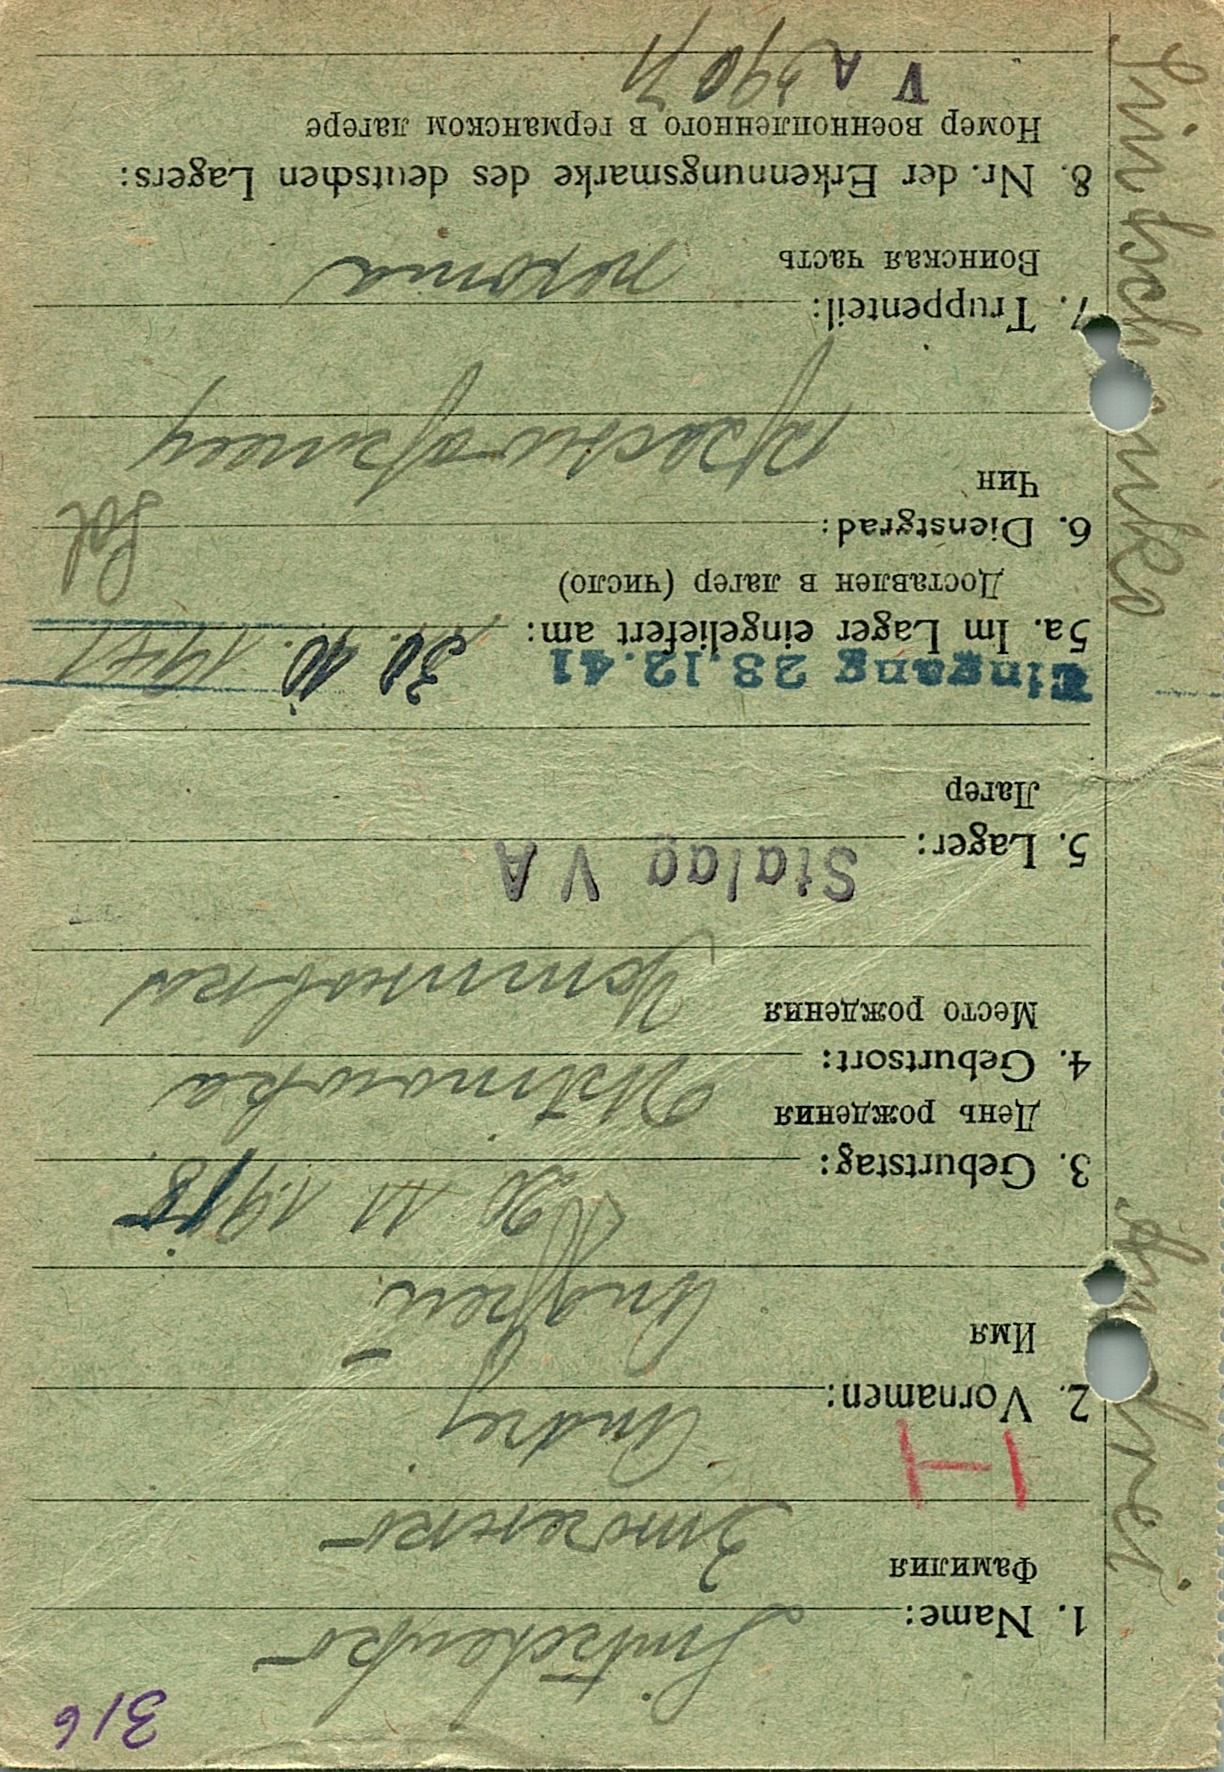 316
1. Name:
Фамилия
2. Vornamen: Andrej
Имя Андрей
3. Geburtstag: 20 11 1918
День рождения
4. Geburtsort: Ustinowka
Место рождения Устиновка
5. Lager: Stalag V A
Лагер
Eingang 23.12.41
5a. Im Lager eingeliefert am: 30. 10. 1941
Доставлен в лагер (число)
6. Dienstgrad: Sol
Чин красноармеец
7. Truppenteil:
Воинская часть пехота
8. Nr. der Erkennungsmarke des deutschen Lagers:
Номер военнопленного в германском лагере
V A
Andrei